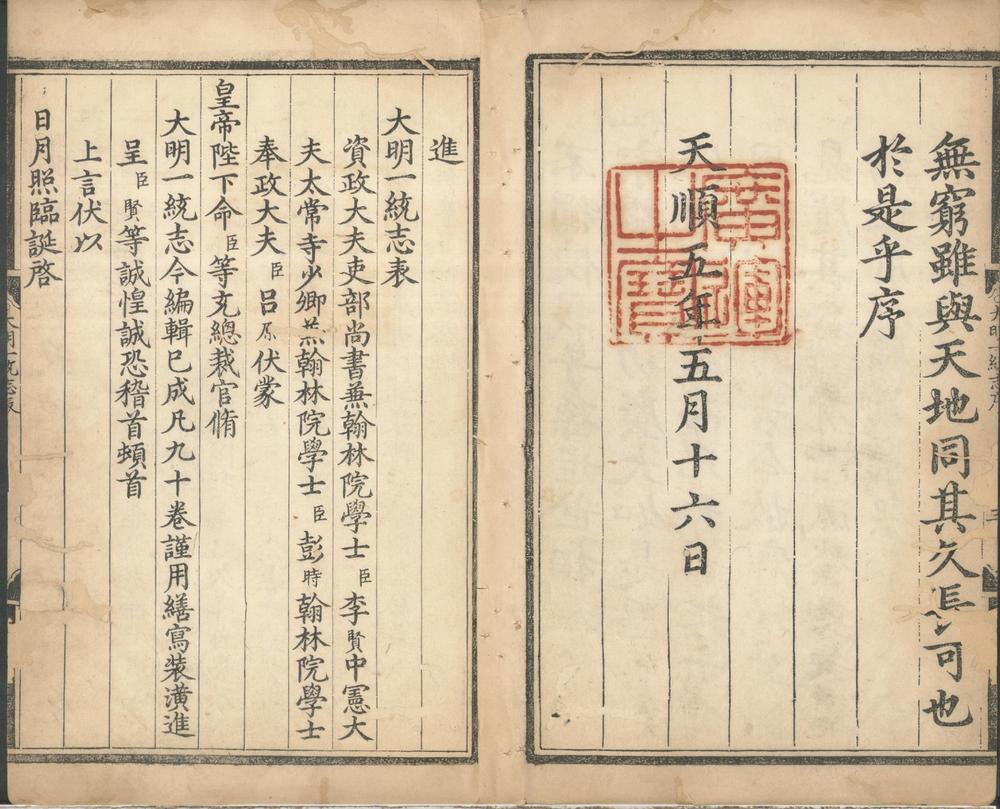 無窮雖與天地同其久長可也
於是乎序
天順五年五月十六日
進
大明一統志表
資政大夫吏部尚書蒹翰林院學士臣李賢中憲大
夫太常寺少卿蒹翰林院學士臣彭時翰林院學士
奉政大夫臣呂原伏蒙
皇帝陛下命臣等充總裁官脩
大明一統志今編輯已成凡九十卷謹用繕寫装潢進
呈臣賢等誠惶誠恐稽首頓首
上言伏以
日月照臨誕啓